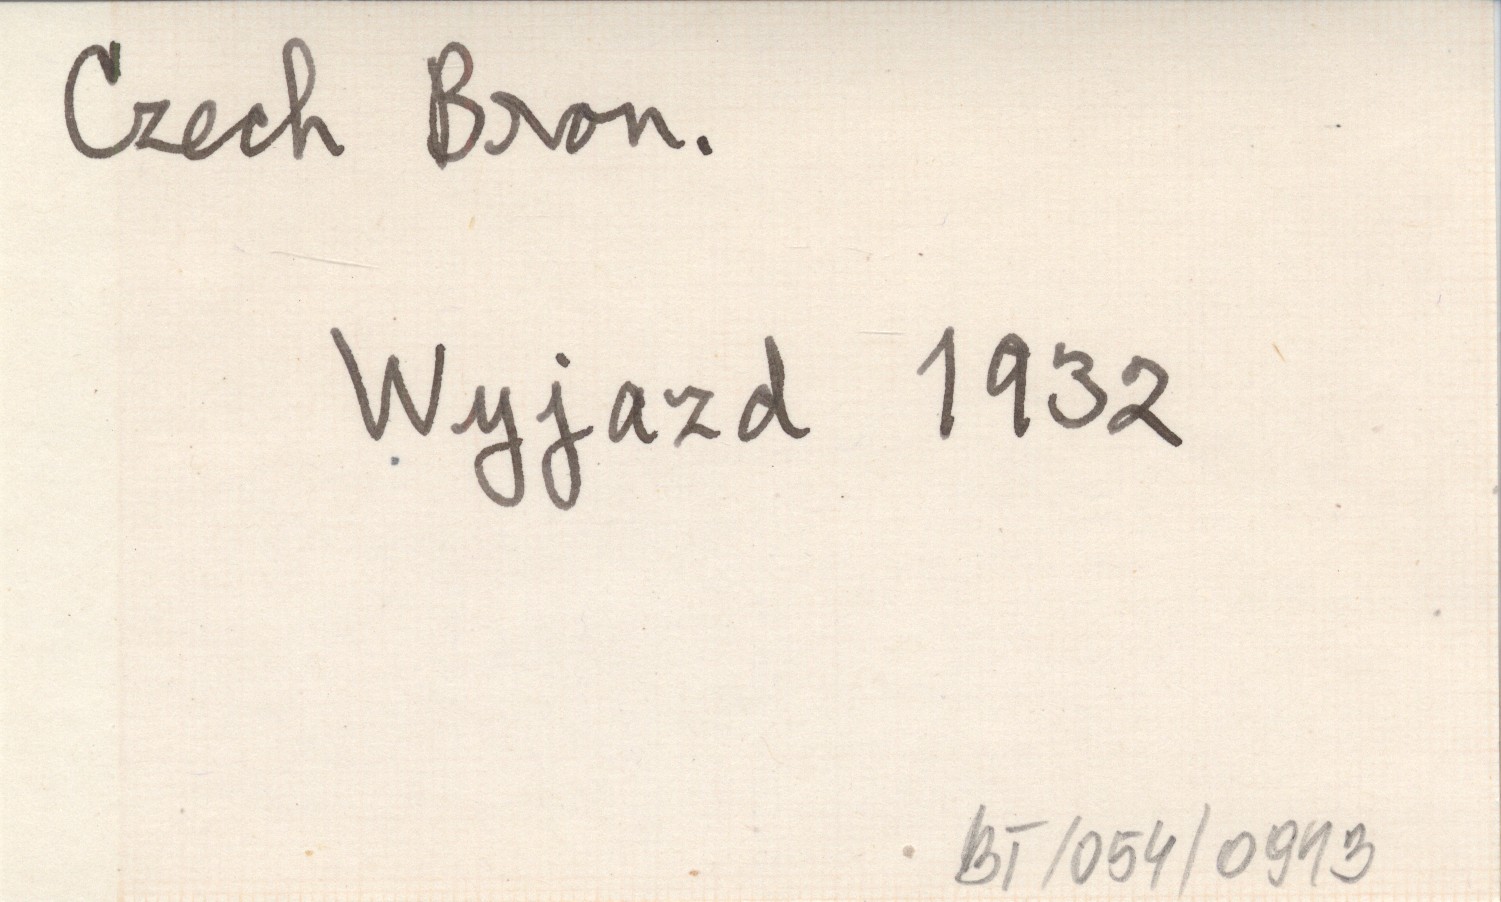 Czech Bron.
Wyjazd 1932
BT/054/0913